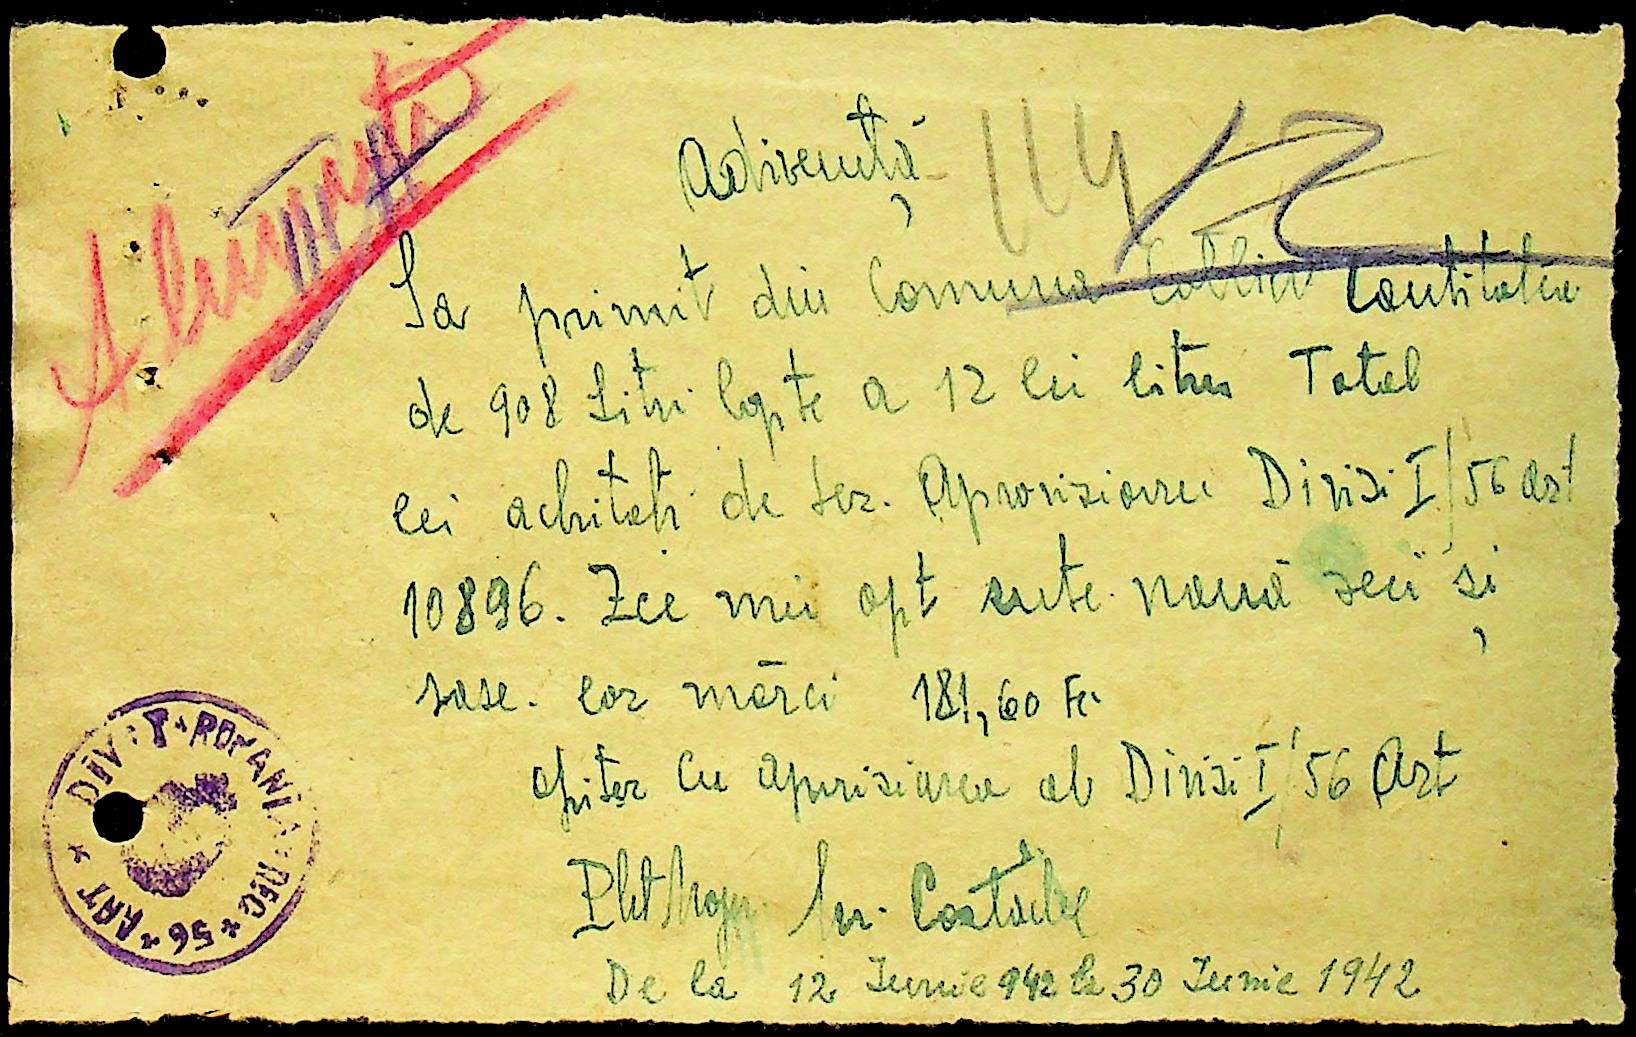 Adivență
Sa primit din Comuna cantitatea
de 908 Litri lapte a 12 lei litru Total
lei achitati de Ser. Aprovizionrei Divizi I/56 Art
10896. Zece mii opt sute nouă zeci și
sase. lor mărci 181,60 Fi
ofițer cu aprovisiarea al Divizi I/56 Art
Plt Major Costache
De la 12 Iunie 942 la 30 Iunie 1942
DIV ROMANIA REG 56 ART